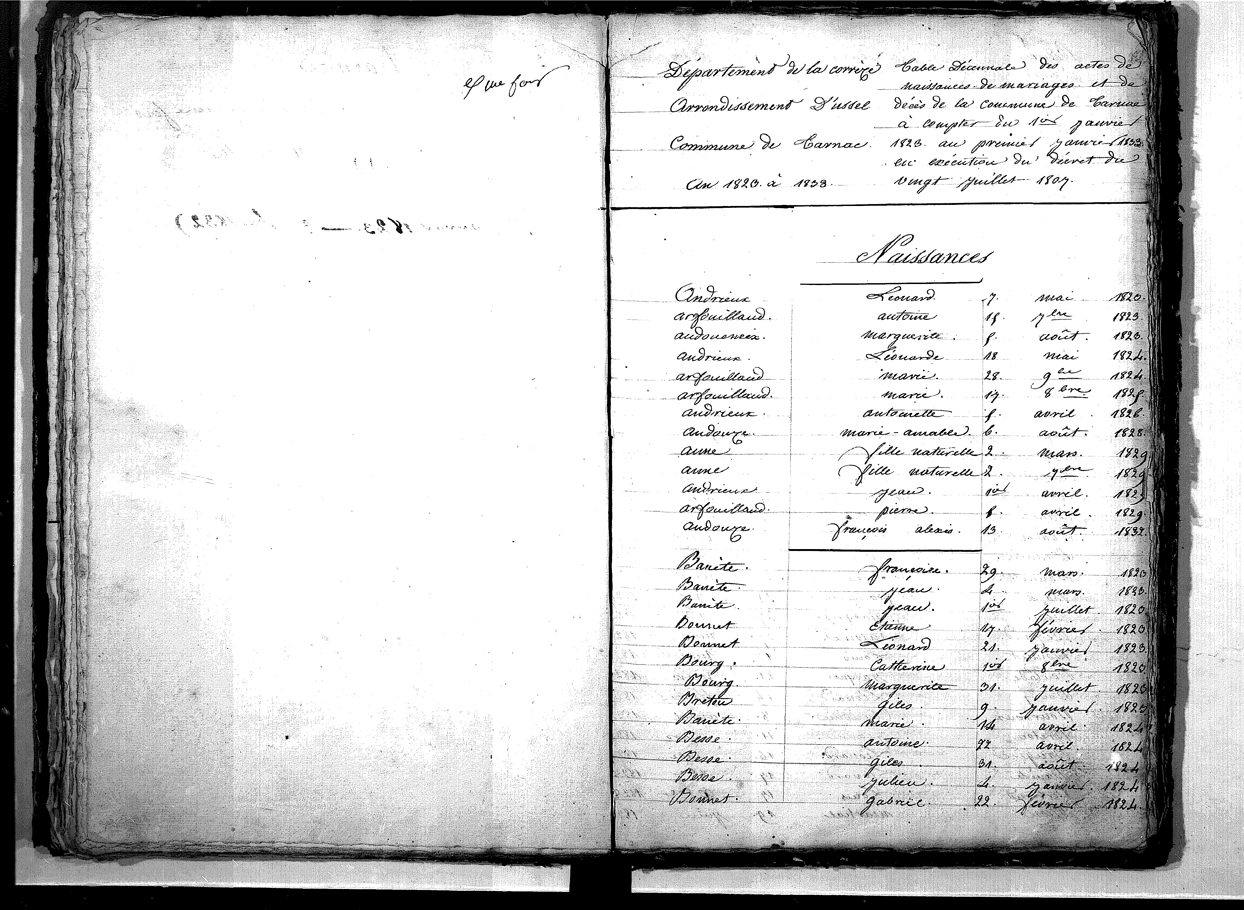 Département de la corrèze
Arrondissement D'ussel
Commune de Tarnac.
an 1823 à 1833
Table Décennale des actes de
naissances de mariages et de
décès de la commune de Tarnac
à compter du 1er janvier
1823 au premier janvier 1833
en exécution du décret du
vingt juillet 1807.
Naissances
Andrieux Léonard 7. mai 1823.
arfouillaud. antoine 15. 7bre 1823
audouneix. marguerite. 5. août. 1823.
andrieux. Léonarde 18 mai 1824.
arfouillaud marie. 28. 9bre 1824
arfouillaud. marie. 17. 8bre 1825.
andrieux. antoinette 5. avril. 1826.
audouze. marie-amable. 6. août. 1828.
anne fille naturelle 2. mars. 1829
anne fille naturelle 2. 7bre 1829
andrieux jean. 1er avril. 1829
arfouillaud. pierre 5. avril. 1829
audouze. françois alexis. 13 août. 1832.
Bariéte. françoise. 29. mars. 1823
Bariéte jean. 4. mars. 1823.
Bariéte. jean. 1er juillet. 1823
Bonnet Etienne 17. février. 1823
Bonnet Léonard 21. janvier 1823.
Bourg. Catherine 1er 8bre 1823
Bourg. marguerite 31. juillet. 1823
Breton giles 9. janvier. 1823
Bariéte. marie. 14 avril. 1824
Besse. antoine. 22 avril. 1824
Besse. giles 31. août. 1824
Besse. julien. 4. janvier 1824
Bonnet. gabriel. 22. février 1824.